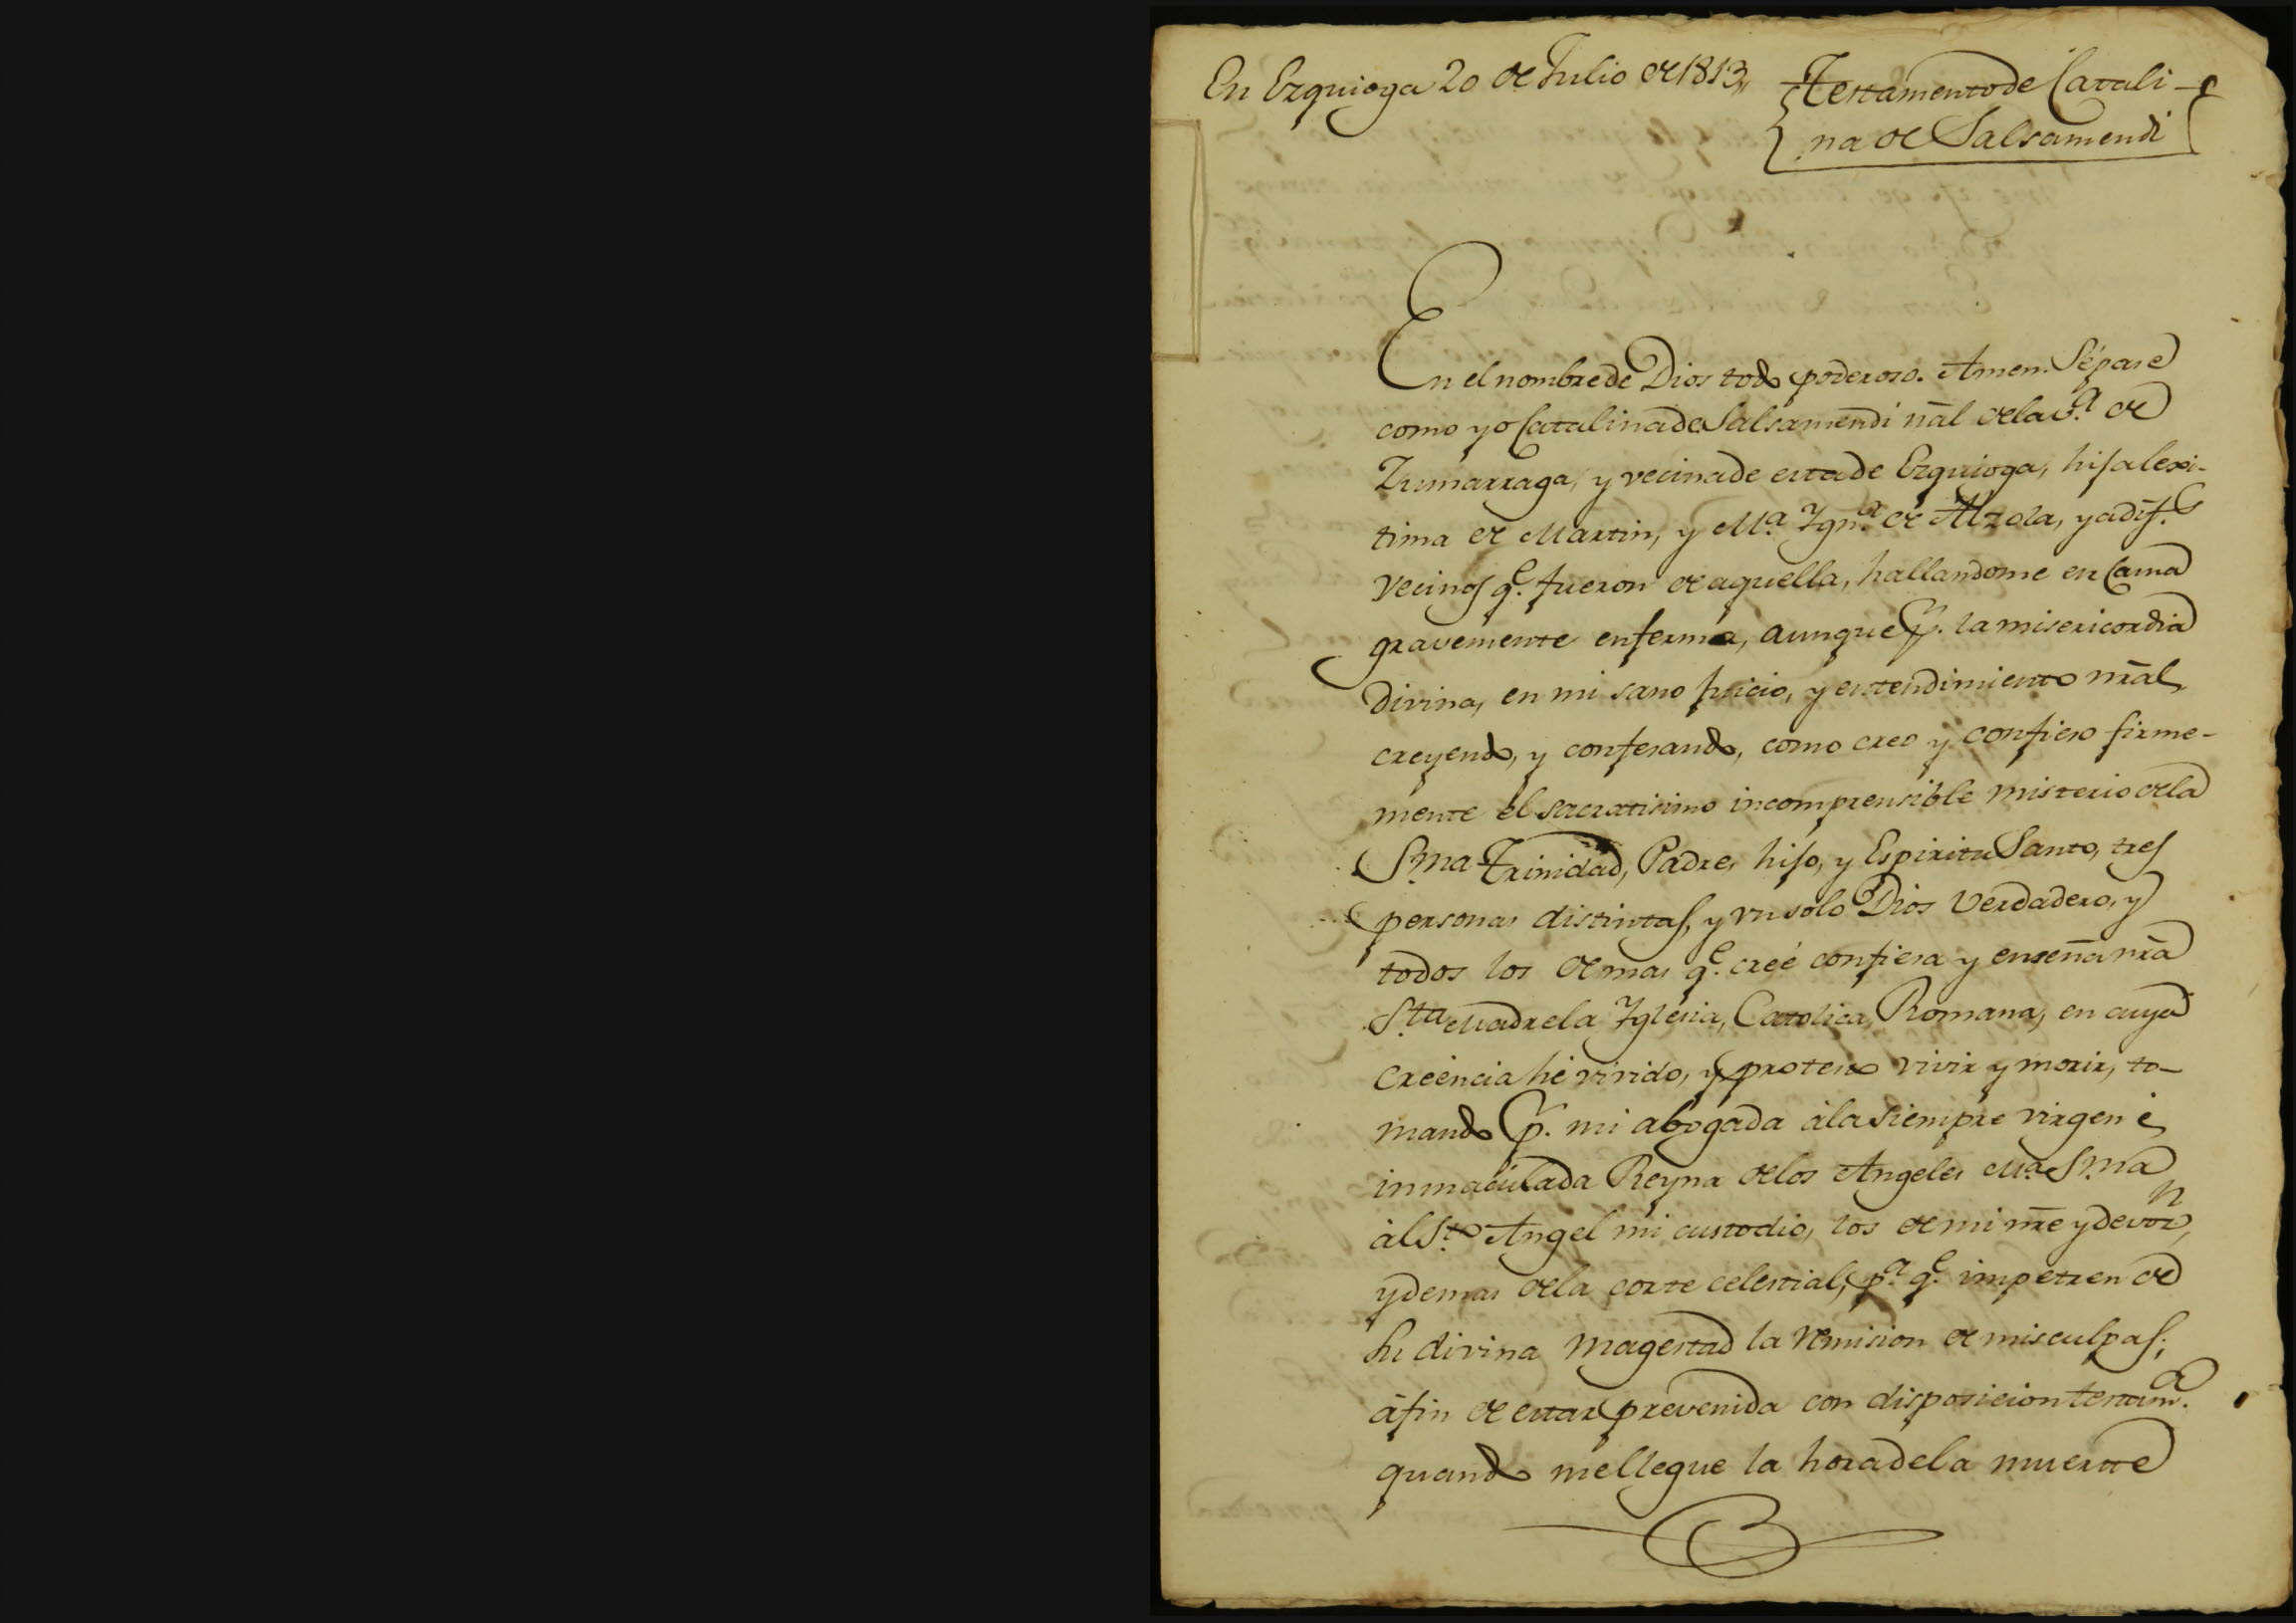 En Ezquioga 20 de Julio de 1813,,
Testamento de Catali-
na de Salsamendi
En el nombre de Dios todo poderoso. Amen. Sépase
como yo Catalina de Salsamendi nāl de la v.ª de
Zumarraga, y vecina de esta de Ezquioga, hija lexi-
tima de Martin, y M.ª Ygn.ª de Alzola, ya dif.s
vecinos q.e fueron de aquella, hallandome en Cama
gravemente enferma, aunque p.r la misericordia
divina, en mi sano juicio, y entendimiento nrāl,
creyendo, y confesando, como creo y confieso firme-
mente el sacratisimo incomprensible misterio de la
S.ma Trinidad, Padre, hijo, y Espiritu Santo, tres
personas distintas, y un solo Dios verdadero, y
todos los demas q.e creé confiesa y enseña nrā
S.ta Madre la Yglesia, Catolica, Romana, en cuya
creéncia hé vivido, y protexto vivir y morir, to-
mando p.r mi abogada á la siempre virgen é
inmaculada Reyna de los Angeles M.ª S.ma
ál S.to Angel mi custodio, los de mi nrē y devoz.n,
y demas de la corte celestial, p.ª q.e impetren de
su divina Magestad la remision de mis culpas;
á fin de estar prevenida con disposicion testam.ª
quando me llegue la hora de la muerte